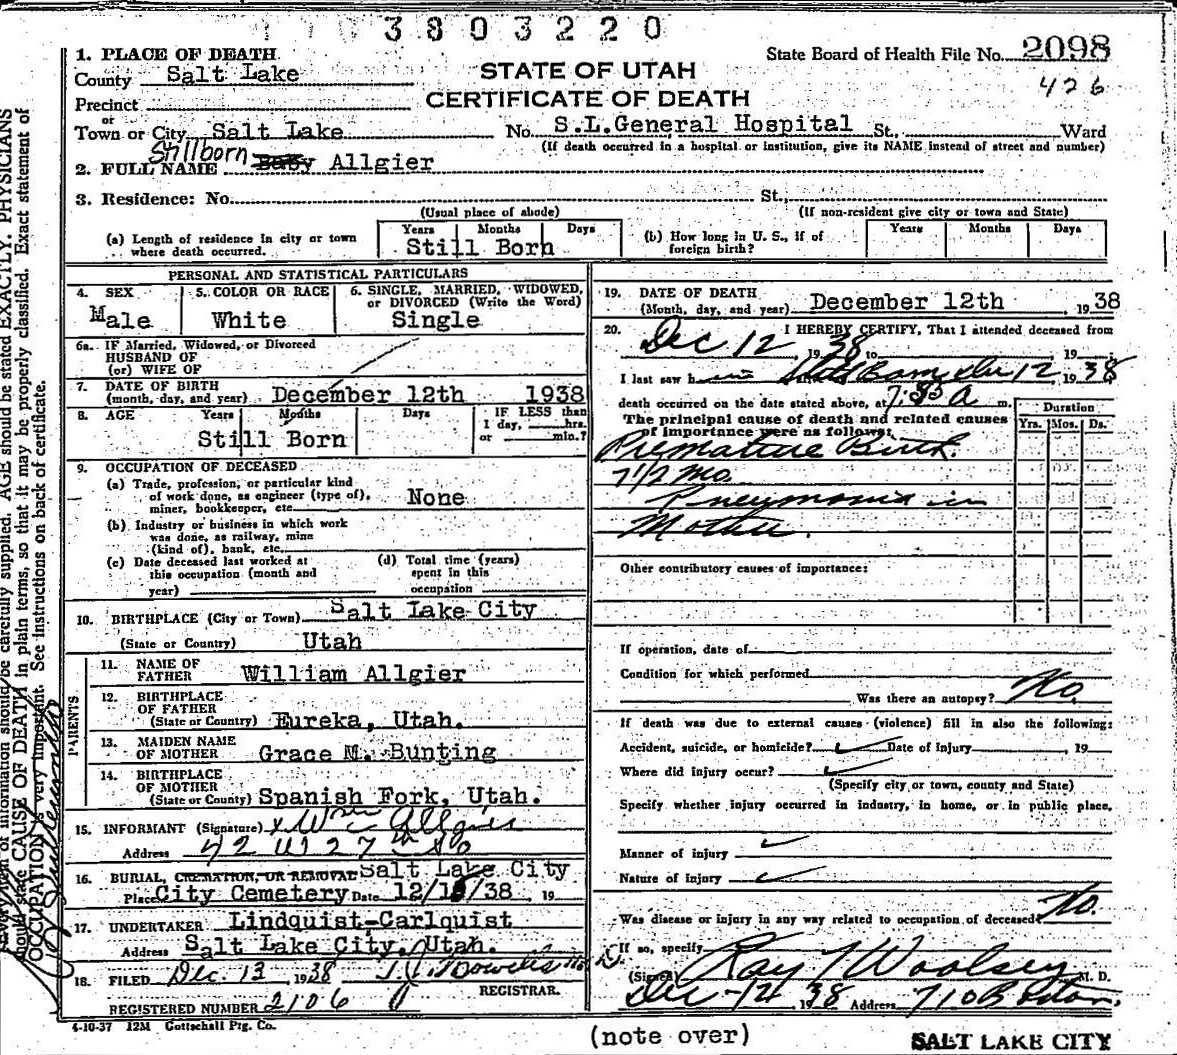 3803220
State Board of Health File No. 2098
426
1. PLACE OF DEATH
County Salt Lake
STATE OF UTAH
CERTIFICATE OF DEATH
Precinct
or
Town or City Salt Lake No. S.L.General Hospital St., Ward
(If death occurred in a hospital or institution, give its NAME instead of street and number)
2. FULL NAME Stillborn Baby Allgier
3. Residence: No. St.,
(Usual place of abode) (If non-resident give city or town and State)
(a) Length of residence in city or town where death occurred. Years Months Days
Still Born
(b) How long in U. S., if of foreign birth? Years Months Days
PERSONAL AND STATISTICAL PARTICULARS
4. SEX
Male
5. COLOR OR RACE
White
6. SINGLE, MARRIED, WIDOWED, or DIVORCED (Write the Word)
Single
6a. IF Married, Widowed, or Divorced
HUSBAND OF
(or) WIFE OF
7. DATE OF BIRTH
(month, day, and year) December 12th 1938
8. AGE Years Months Days IF LESS than
1 day, hrs.
or min.?
Still Born
9. OCCUPATION OF DECEASED
(a) Trade, profession, or particular kind
of work done, as engineer (type of),
miner, bookkeeper, etc. None
(b) Industry or business in which work
was done, as railway, mine
(kind of), bank, etc.
(c) Date deceased last worked at
this occupation (month and
year)
(d) Total time (years)
spent in this
occupation
10. BIRTHPLACE (City or Town) Salt Lake City
(State or Country) Utah
PARENTS
11. NAME OF
FATHER William Allgier
12. BIRTHPLACE
OF FATHER
(State or Country) Eureka, Utah.
13. MAIDEN NAME
OF MOTHER Grace M. Bunting
14. BIRTHPLACE
OF MOTHER
(State or County) Spanish Fork, Utah.
15. INFORMANT (Signature) x Wm C Allgier
Address 42 W 27th So
16. BURIAL, CREMATION, OR REMOVAL Salt Lake City
Place City Cemetery Date 12/15/38 19
17. UNDERTAKER Lindquist-Carlquist
Address Salt Lake City, Utah.
18. FILED Dec. 13 1938
REGISTRAR.
REGISTERED NUMBER 2106
4-10-37 12M Gottschall Ptg. Co.
19. DATE OF DEATH
(Month, day, and year) December 12th, 1938
20. I HEREBY CERTIFY, That I attended deceased from
Dec 12, 1938 to , 19
I last saw h im Still Born Dec 12, 1938
death occurred on the date stated above, at A m.
The principal cause of death and related causes
of importance were as follows:
Duration
Yrs. Mos. Ds.
Premature Birth.
7 1/2 Mo.
Pneumonia in
Mother.
Other contributory causes of importance:
If operation, date of
Condition for which performed
Was there an autopsy? No
If death was due to external causes (violence) fill in also the following:
Accident, suicide, or homicide? ✓ Date of Injury , 19
Where did injury occur? ✓
(Specify city or town, county and State)
Specify whether injury occurred in industry, in home, or in public place.
Manner of injury ✓
Nature of Injury ✓
Was disease or injury in any way related to occupation of deceased? No.
If so, specify
(Signed) Ray T Woolsey M. D.
Dec -12 1938 Address 710 Boston.
(note over)
SALT LAKE CITY
information should be carefully supplied. AGE should be stated EXACTLY. PHYSICIANS
should state CAUSE OF DEATH in plain terms, so that it may be properly classified. Exact statement of
OCCUPATION is very important. See instructions on back of certificate.